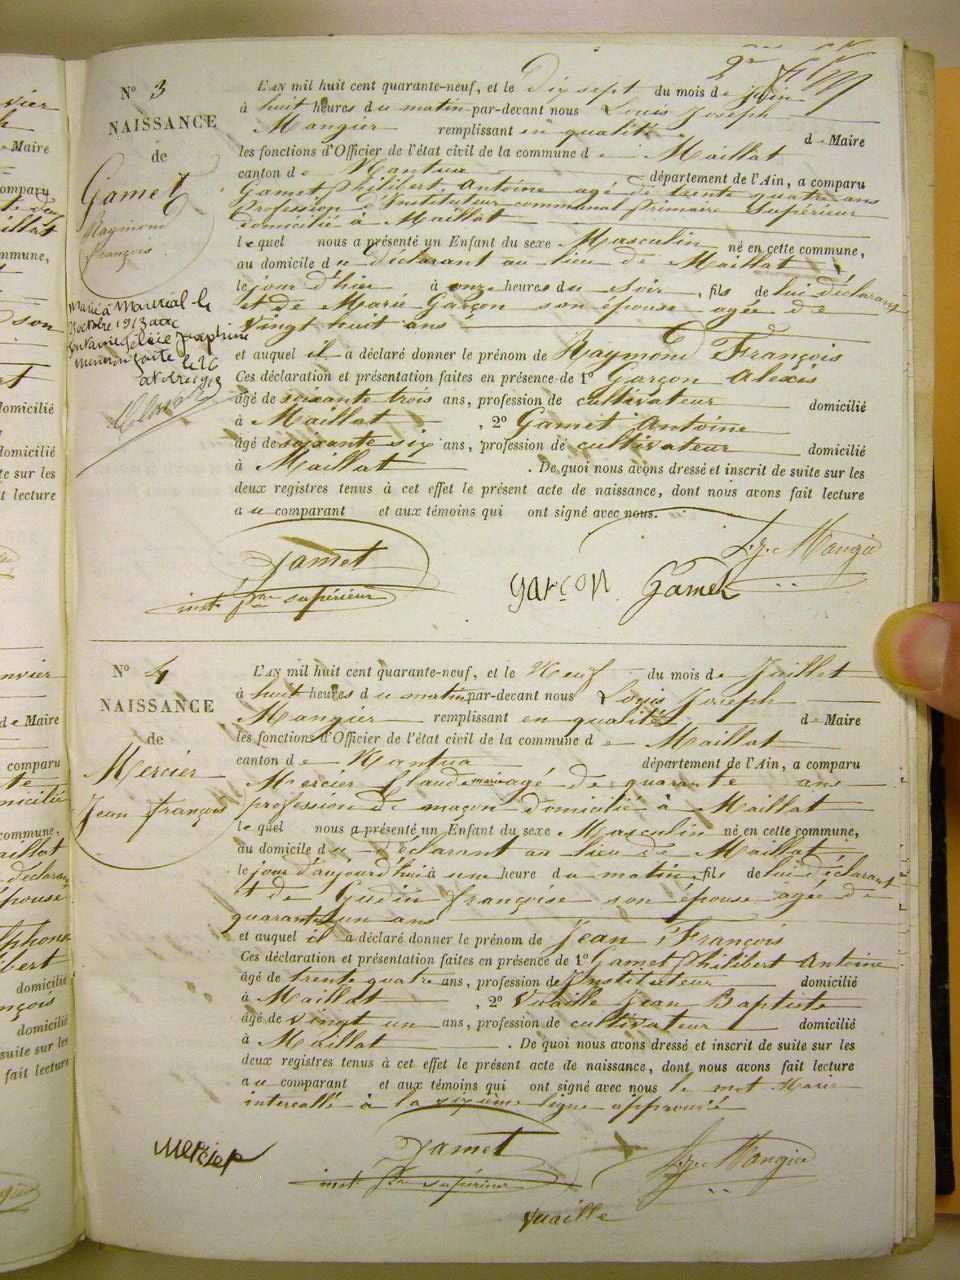 N° 3
NAISSANCE
de
Gamet
Raymond
françois
L'AN mil huit cent quarante-neuf, et le dix sept du mois de Juin
à huit heures du matin par-devant nous Louis Joseph
Mangier remplissant en qualité de Maire
les fonctions d'Officier de l'état civil de la commune de Maillat
canton de Nantua département de l'Ain, a comparu
Gamet Philibert Antoine agé de trente quatre ans
Profession d'Instituteur communal Primaire Supérieur
domicilié à Maillat
lequel nous a présenté un Enfant du sexe Masculin né en cette commune,
au domicile du déclarant au lieu de Maillat
le jour d'hier à onze heures du soir, fils de lui déclarant
et de Marie Garçon son épouse agée de
vingt huit ans
et auquel il a déclaré donner le prénom de Raymond François
Ces déclaration et présentation faites en présence de 1° Garçon Alexis
âgé de soixante trois ans, profession de cultivateur domicilié
à Maillat, 2° Gamet Antoine
âgé de soixante six ans, profession de cultivateur domicilié
à Maillat. De quoi nous avons dressé et inscrit de suite sur les
deux registres tenus à cet effet le présent acte de naissance, dont nous avons fait lecture
au comparant et aux témoins qui ont signé avec nous.
Marié à Maréal le
octobre 1913 avec
Joséphine
mention faite le 26
octobre 1913
Gamet
inst. Pre supérieur
garçon
Gamet
Mangier
N° 4
NAISSANCE
de
Mercier
Jean françois
L'AN mil huit cent quarante-neuf, et le Neuf du mois de Juillet
à huit heures du matin par-devant nous Louis Joseph
Mangier remplissant en qualité de Maire
les fonctions d'Officier de l'état civil de la commune de Maillat
canton de Nantua département de l'Ain, a comparu
Mercier Claude marie agé de quarante ans
profession de maçon domicilié à Maillat
lequel nous a présenté un Enfant du sexe Masculin né en cette commune,
au domicile du déclarant au lieu de Maillat
le jour d'aujourd'hui à une heure du matin, fils de lui déclarant
et de Gudin françoise son épouse agée de
quarante un ans
et auquel il a déclaré donner le prénom de Jean François
Ces déclaration et présentation faites en présence de 1° Gamet Philibert Antoine
âgé de trente quatre ans, profession de Instituteur domicilié
à Maillat, 2° Vuaille Jean Baptiste
âgé de vingt un ans, profession de cultivateur domicilié
à Maillat. De quoi nous avons dressé et inscrit de suite sur les
deux registres tenus à cet effet le présent acte de naissance, dont nous avons fait lecture
au comparant et aux témoins qui ont signé avec nous le mot Marie
intercallé à la sixième ligne approuvé
mercier
Gamet
inst Pre supérieur
Mangier
vuaille